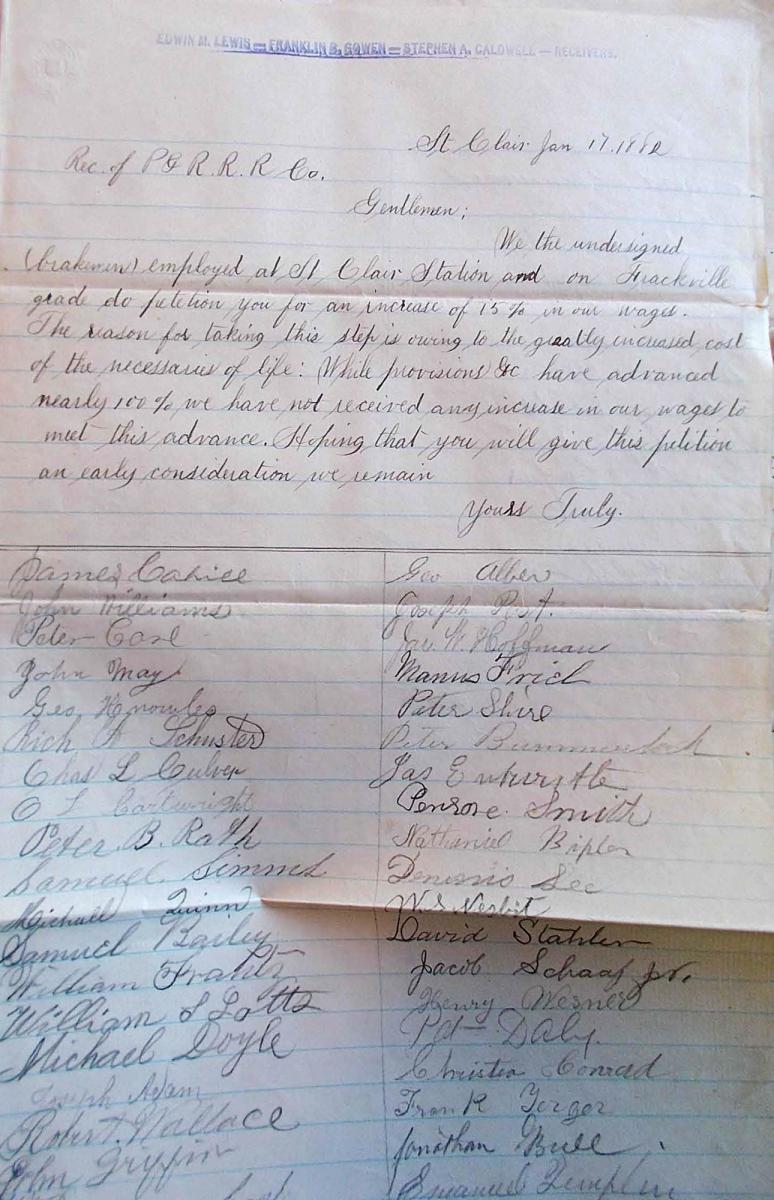 EDWIN M. LEWIS — FRANKLIN B. GOWEN — STEPHEN A. CALDWELL — RECEIVERS.
St Clair Jan 17. 1882
Rec. of P & R. R. R Co.
Gentlemen;
We the undersigned
(brakemen) employed at St Clair Station and on Frackville
grade do petition you for an increase of 15 % in our wages.
The reason for taking this step is owing to the greatly increased cost
of the necessaries of life: While provisions &c have advanced
nearly 100 % we have not received any increase in our wages to
meet this advance. Hoping that you will give this petition
an early consideration we remain
Yours Truly.
James Cahill
John Williams
Peter Earl
John May
Geo Knowles
Rich A Schuster
Chas L Culver
O L Cartwright
Peter. B. Rath
Samuel Simms
Michael Quinn
Samuel Bailey
William Frantz
William S Latts
Michael Doyle
Joseph Adam
Robert Wallace
John Gryffin
Geo Alber
Joseph Rist.
Jac W. Hoffman
Manus Frich
Peter Shire
Peter
Jas
Penrose Smith
Nathaniel
Dennis
W. S Nesbit
David Stahler
Jacob Schaaf Jr.
Henry Wesner
Pat Daly.
Christia Conrad
Frank Yerger
Jonathan Bull
Emanuel